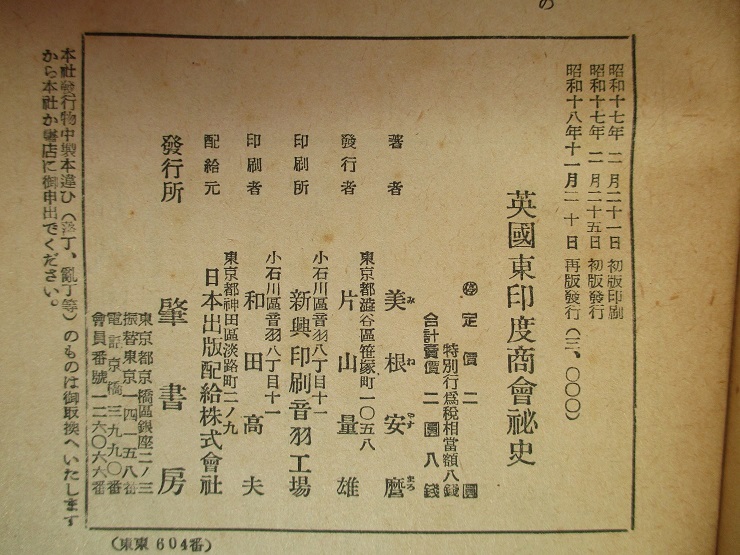 の
昭和十七年 二 月二十一日 初版印刷
昭和十七年 二 月二十五日 初版發行
昭和十八年十一月 二十 日 再版發行(三、〇〇〇)
英國東印度商會祕史
停 定 價 二 圓
特別行爲税相當額八錢
合計賣價 二 圓 八 錢
著者 美根安麿
み ね やす まろ
東京都澁谷區笹塚町一〇五八
發行者 片山量雄
小石川區音羽八丁目十一
印刷所 新興印刷音羽工場
小石川區音羽八丁目十一
印刷者 和田高夫
東京都神田區淡路町二ノ九
配給元 日本出版配給株式會社
發行所 肇書房
東京都京橋區銀座二ノ三
振替東京一四一五八番
電話京橋 三九九〇番
會員番號 一二六〇六六番
本社發行物中製本違ひ(落丁、亂丁等)のものは御取換へいたします
から本社か書店に御申出でください。
(東東604番)